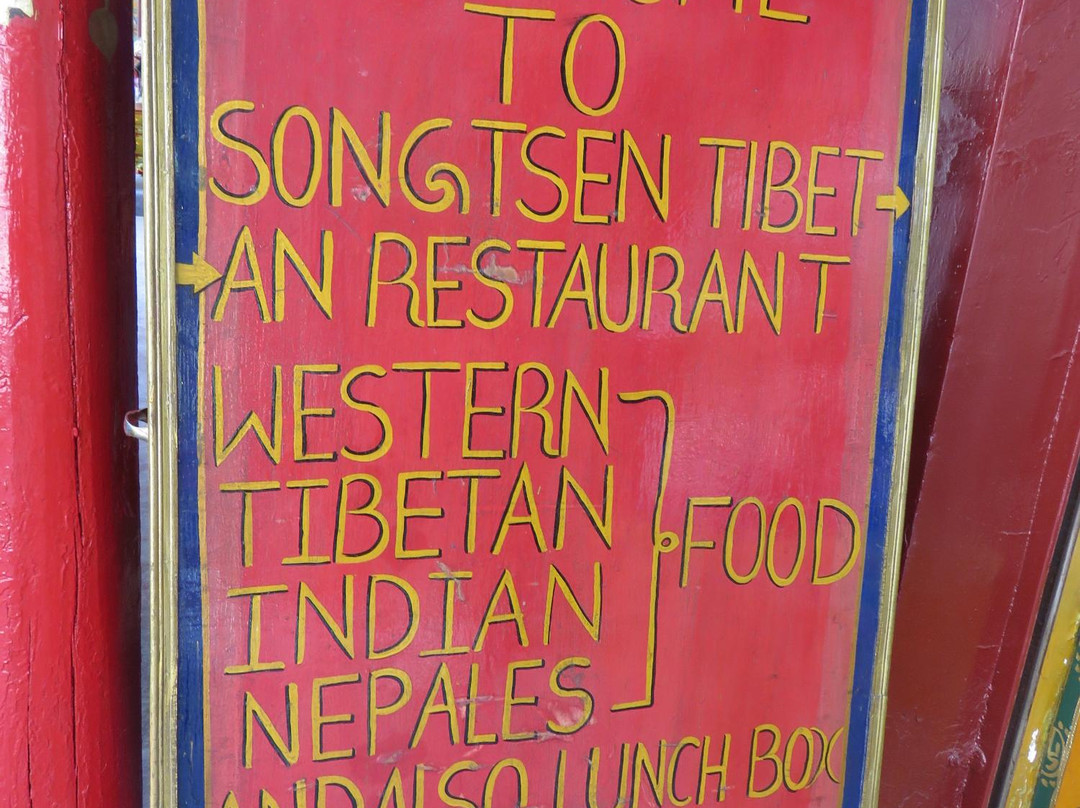 TO
SONGTSEN TIBET
AN RESTAURANT
WESTERN
TIBETAN
INDIAN
NEPALES
FOOD
AND ALSO LUNCH BOX